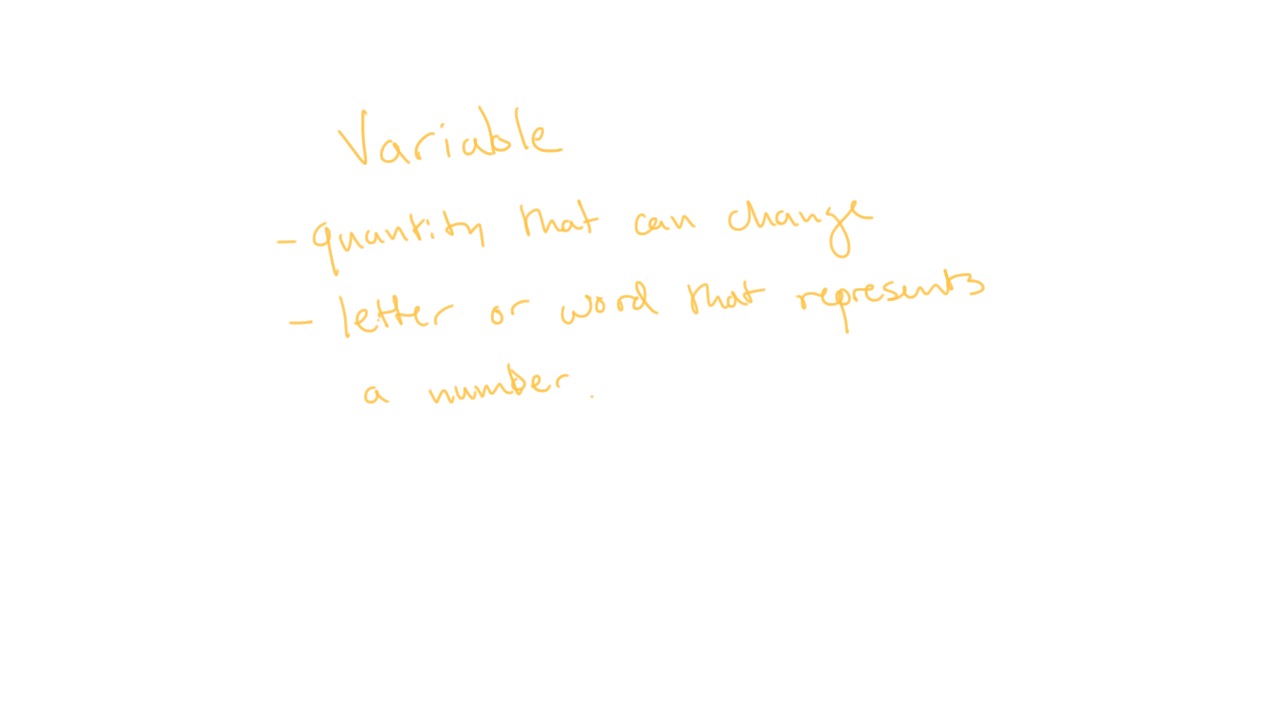 Variable
- quantity that can change
- letter or word that represents
a number.